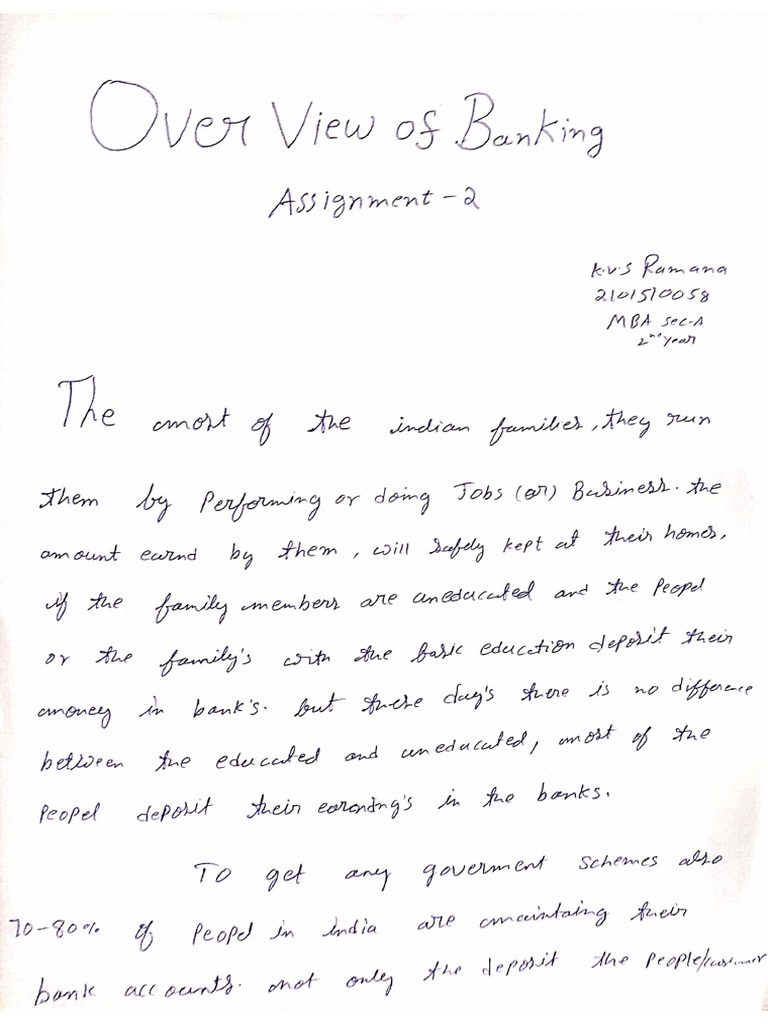 Over View of Banking
Assignment - 2
K.V.S Ramana
2101510058
MBA Sec-A
2nd Year
The most of the indian families, they run
them by Performing or doing Jobs (or) Business. the
amount earnd by them, will safely kept at their homes,
if the family members are uneducated and the Peopel
or the family's with the basic education deposit their
money in bank's. but these day's there is no difference
between the educated and uneducated, most of the
Peopel deposit their earning's in the banks.
To get any goverment schemes also
70-80% of Peopel in india are maintaing their
bank accounts. not only the deposit the People/customer